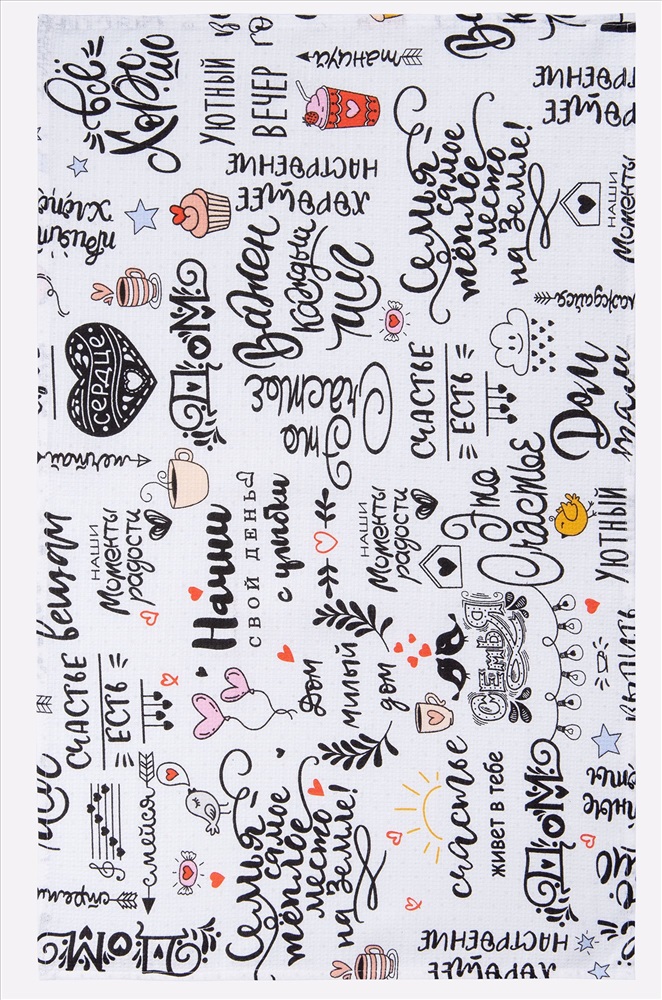 всё
Хорошо
УЮТНЫЙ
ВЕЧЕР
танцуй
НАСТРОЕНИЕ
ХОРОШЕЕ
НАСТРОЕНИЕ
ХОРОШЕЕ
Семья
самое
тёплое
место
на Земле!
НАШИ
Моменты
Важен
каждый
миг
ДОМ
СЕРДЦЕ
Это
Счастье
СЧАСТЬЕ
ЕСТЬ
Дом
там
мечтай
вещам
НАШИ
Моменты
радости
Начни
СВОЙ ДЕНЬ
с улыбки
НАШИ
Моменты
радости
Это
Счастье
УЮТНЫЙ
СЧАСТЬЕ
ЕСТЬ
Дом
милый
дом
СЕМЬЯ
смейся
Семья
самое
тёплое
место
на Земле!
счастье
живет в тебе
ДОМ
ДОМ
НАСТРОЕНИЕ
ХОРОШЕЕ